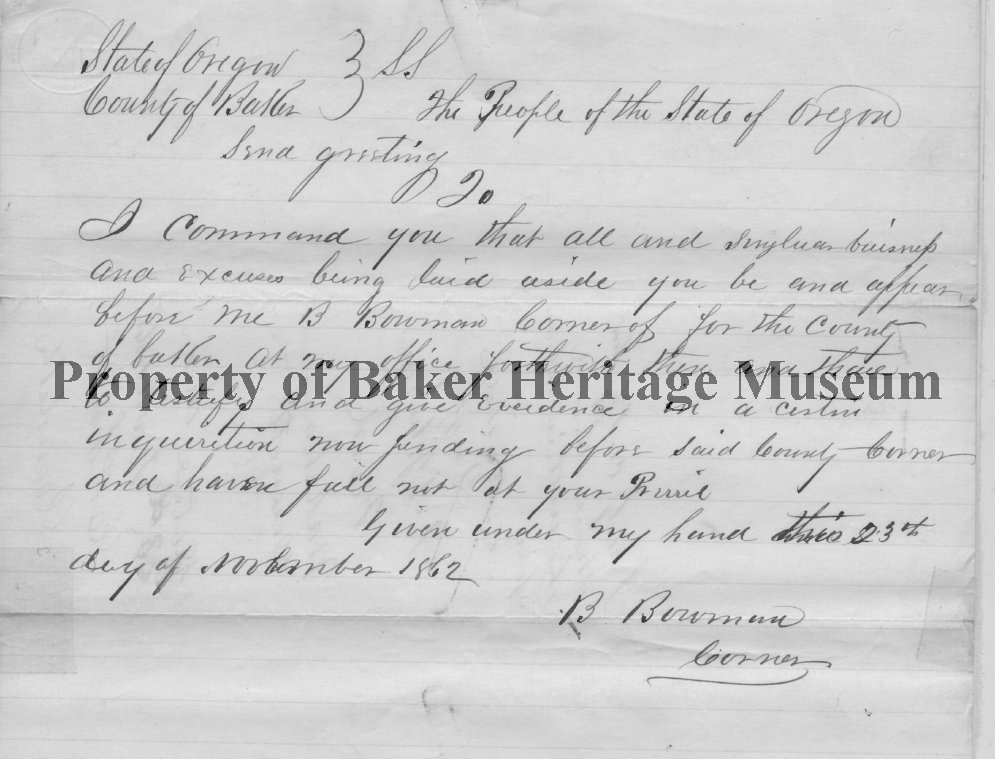 State of Oregon } SS
County of Baker } The People of the State of Oregon
Send greeting
To
I Command you that all and Singluar buisness
and Excuses being laid aside you be and appear
before me B Bowman Corner of for the County
of baker at my office forthwith then and thare
to testify and give Eveidence in a certin
inquesition now pending before said County Corner
and fail not at your Prriel
Given under my hand this 23th
day of November 1862
B Bowman
Corner
Property of Baker Heritage Museum